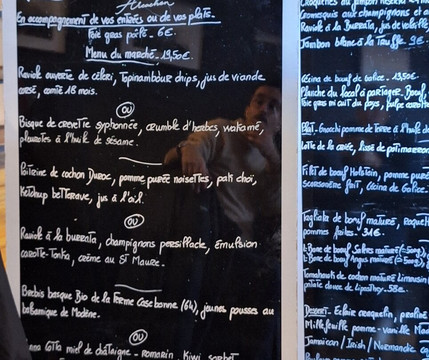 Attention
En accompagnement de vos entrées ou de vos plats.
Foie gras poêlé. 6€.
Menu du marché. 19,50€.
Raviole ouverte de céleri, Topinambour chips, jus de viande
corsé, comté 18 mois.
OU
Bisque de crevette syphonnée, crumble d'herbes, wakamé,
pleurotes à l'huile de sésame.
Poitrine de cochon Duroc, pomme purée noisettes, pak choï,
Ketchup betterave, jus à l'ail.
OU
Raviole à la burrata, champignons persillade, émulsion
carotte-Tonka, crème au St Maure.
Brebis basque Bio de la Ferme (64), jeunes pousses au
balsamique de Modène.
OU
cotta miel de châtaigne - romarin, Kiwi, sorbet
Croquettes au jambon
Cromesquis aux champignons et
Raviole à la Burrata, jus de
Jambon blanc à la Truffe 9€.
Cécina de bœuf de Galice. 13,50€.
Planche du local à partager. Bœuf,
Foie gras mi cuit du pays,
Plat. Gnocchi pomme de Terre à l'huile de
Lotte de la criée,
Filet de bœuf Holstein, pomme purée
Cécina de Galice.
Tagliata de bœuf maturé, Roquette
pommes faites. 31€.
T-Bone de bœuf
T-Bone de bœuf Angus maturé
Tomahawk de cochon maturé Limousin
patate douce de
Dessert. Eclaire croquetin,
Millefeuille pomme - vanille
Jamaican / Irish / Normandie